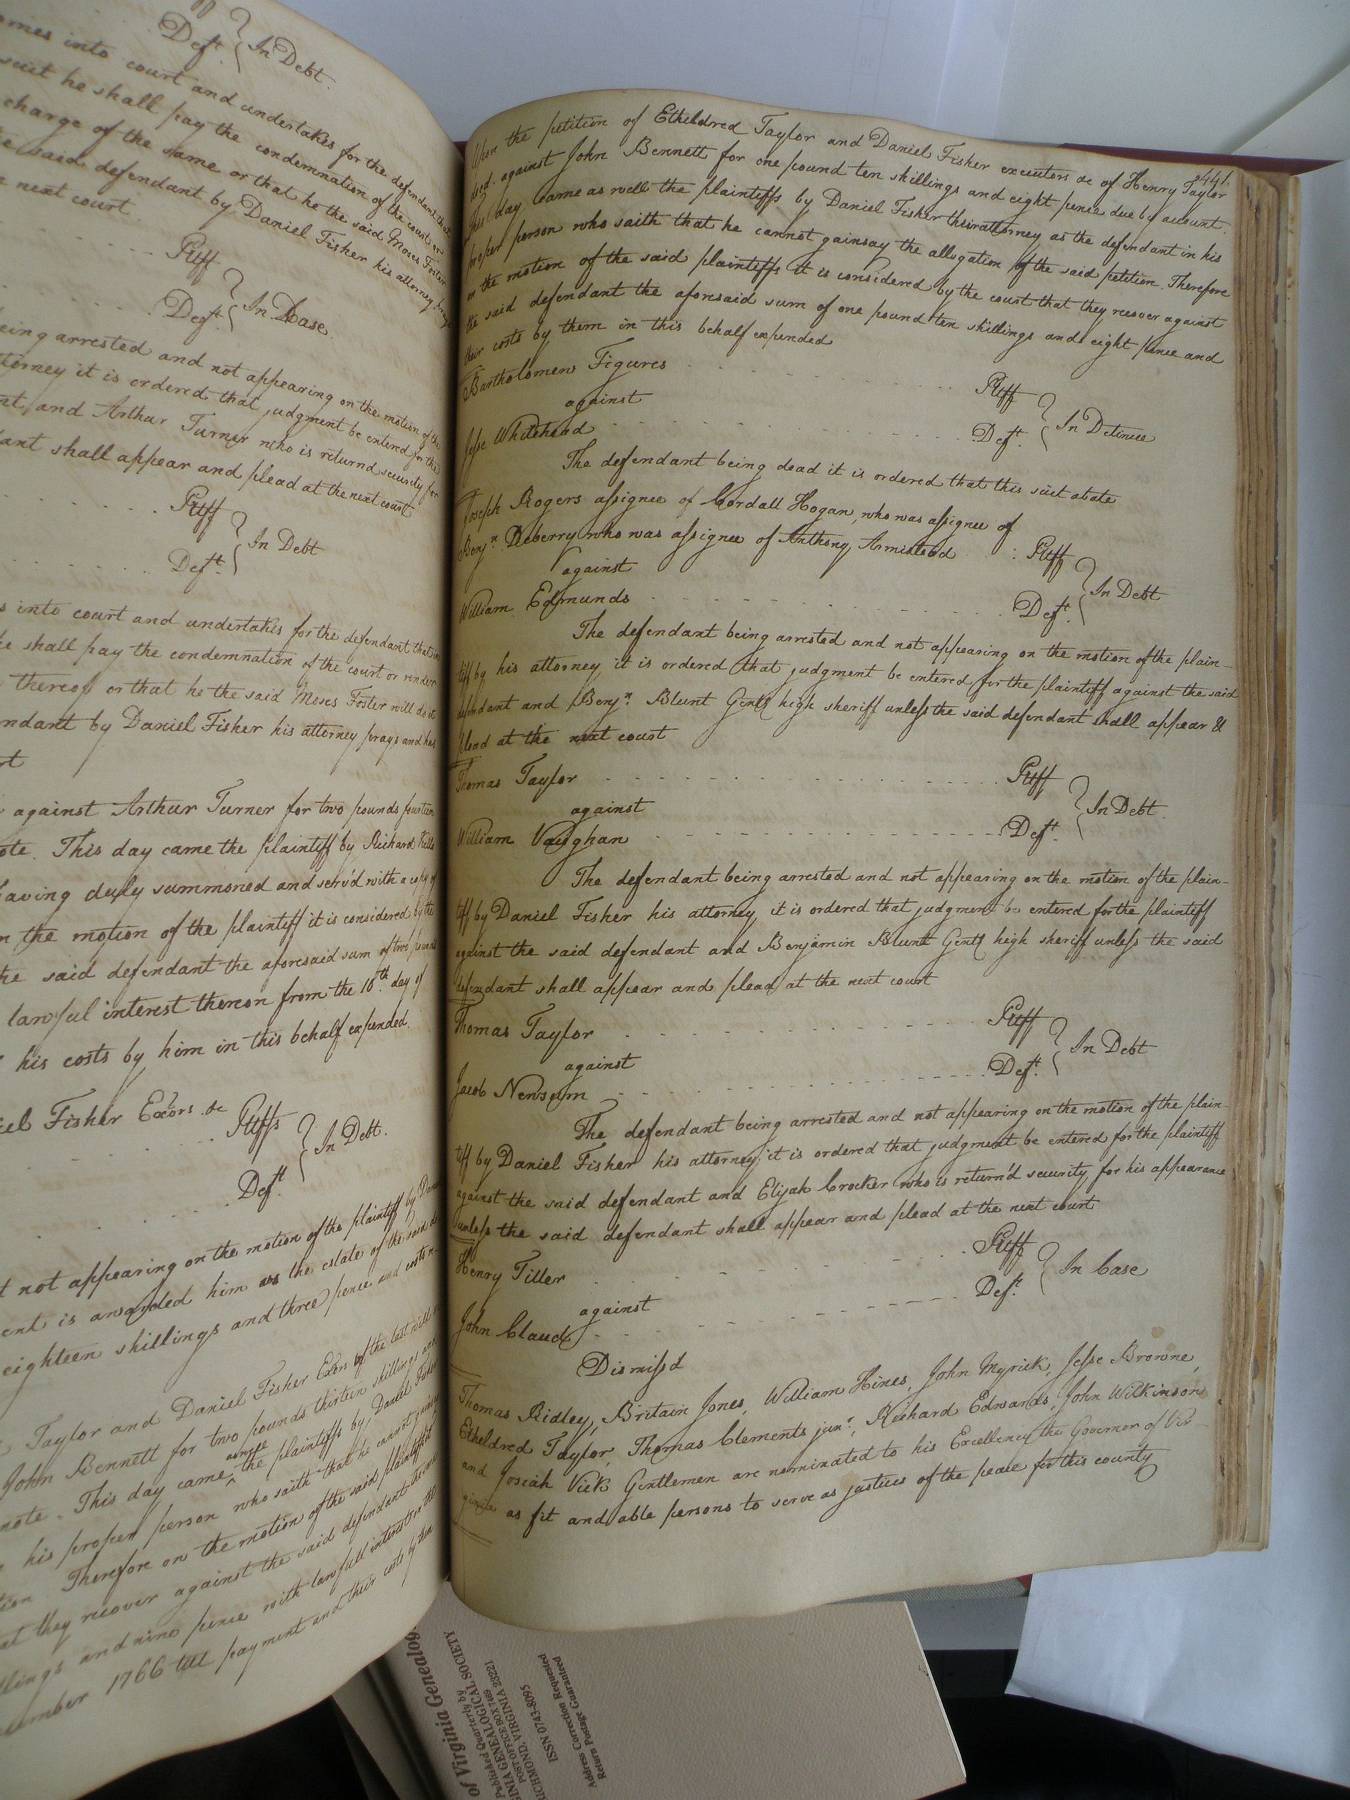 Deft. In Debt.
omes into court and undertakes for the defendant that
suit he shall pay the condemnation of the court or
charge of the same or that he the said Moses Foster
said defendant by Daniel Fisher his attorney
next court.
Pltff
In Case
Deft.
eing arrested and not appearing on the motion of the
torney it is ordered that judgment be entered for the
nt, and Arthur Turner who is returnd security for
ant shall appear and plead at the next court
Pltff
In Debt
Deft.
s into court and undertakes for the defendant that
he shall pay the condemnation of the court or render
thereof or that he the said Moses Foster will do it
ndant by Daniel Fisher his attorney prays and has
rt
against Arthur Turner for two pounds fourteen
ote. This day came the plaintiff by Richard Kello
having duly summoned and serv'd with a copy of
n the motion of the plaintiff it is considered by the
he said defendant the aforesaid sum of two pounds
lawful interest thereon from the 10th. day of
his costs by him in this behalf expended.
iel Fisher Exors. &c Pltffs
In Debt.
Deft.
t not appearing on the motion of the plaintiff by
ent is awarded him the estate of the said
eighteen shillings and three pence and costs
Taylor and Daniel Fisher Exors of the last will
John Bennett for two pounds thirteen shillings and
note. This day came as well the plaintiffs by Daniel Fisher
his proper person who saith that he cannot gainsay
tion Therefore on the motion of the said plaintiffs it
at they recover against the said defendant
llings and nine pence with lawfull interest
cember 1766 till payment and their costs by them
441.
Upon the petition of Etheldred Taylor and Daniel Fisher executors &c of Henry Taylor
decd. against John Bennett for one pound ten skillings and eight pence due by account.
This day came as well the plaintiffs by Daniel Fisher their attorney as the defendant in his
proper person who saith that he cannot gainsay the allegation of the said petition. Therefore
on the motion of the said plaintiffs it is considered by the court that they recover against
the said defendant the aforesaid sum of one pound ten skillings and eight pence and
their costs by them in this behalf expended
Bartholomew Figures Pltff
against In Detinue
Jesse Whitehead Deft.
The defendant being dead it is ordered that this suit abate
Joseph Rogers assignee of Cordall Hogan, who was assignee of
Benjn. Deberry who was assignee of Anthony Armistead Pltff
against In Debt
William Edmunds Deft.
The defendant being arrested and not appearing on the motion of the plain-
tiff by his attorney it is ordered that judgment be entered for the plaintiff against the said
defendant and Benjn. Blunt Gentl high sheriff unless the said defendant shall appear &
plead at the next court
Thomas Taylor Pltff
against In Debt.
William Vaughan Deft.
The defendant being arrested and not appearing on the motion of the plain-
tiff by Daniel Fisher his attorney, it is ordered that judgment be entered for the plaintiff
against the said defendant and Benjamin Blunt Gentl high sheriff unless the said
defendant shall appear and plead at the next court
Thomas Taylor Pltff
against In Debt
Jacob Newsum Deft.
The defendant being arrested and not appearing on the motion of the plain-
tiff by Daniel Fisher his attorney, it is ordered that judgment be entered for the plaintiff
against the said defendant and Elijah Crocker who is return'd security for his appearance
unless the said defendant shall appear and plead at the next court
Henry Tiller Pltff
against In Case
John Claud Deft.
Dismissd
Thomas Ridley, Britain Jones, William Hines, John Myrick, Jesse Browne,
Etheldred Taylor, Thomas Clements junr., Richard Edwards, John Wilkinson
and Josiah Vick Gentlemen are nominated to his Excellency the Governor of Vir-
ginia as fit and able persons to serve as justices of the peace for this county
of Virginia Genealog
Published Quarterly by
INIA GENEALOGICAL SOCIETY
POST OFFICE BOX 7469
RICHMOND, VIRGINIA 23221
ISSN 0743-8095
Address Correction Requested
Return Postage Guaranteed